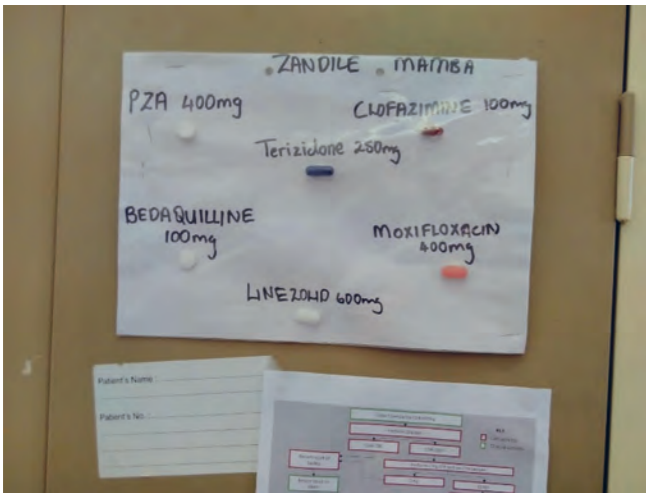 ZANDILE MAMBA
PZA 400mg
CLOFAZIMINE 100mg
Terizidone 250mg
BEDAQUILLINE
100mg
MOXIFLOXACIN
400mg
LINEZOLID 600mg
Patient's Name :
Patient's No. :